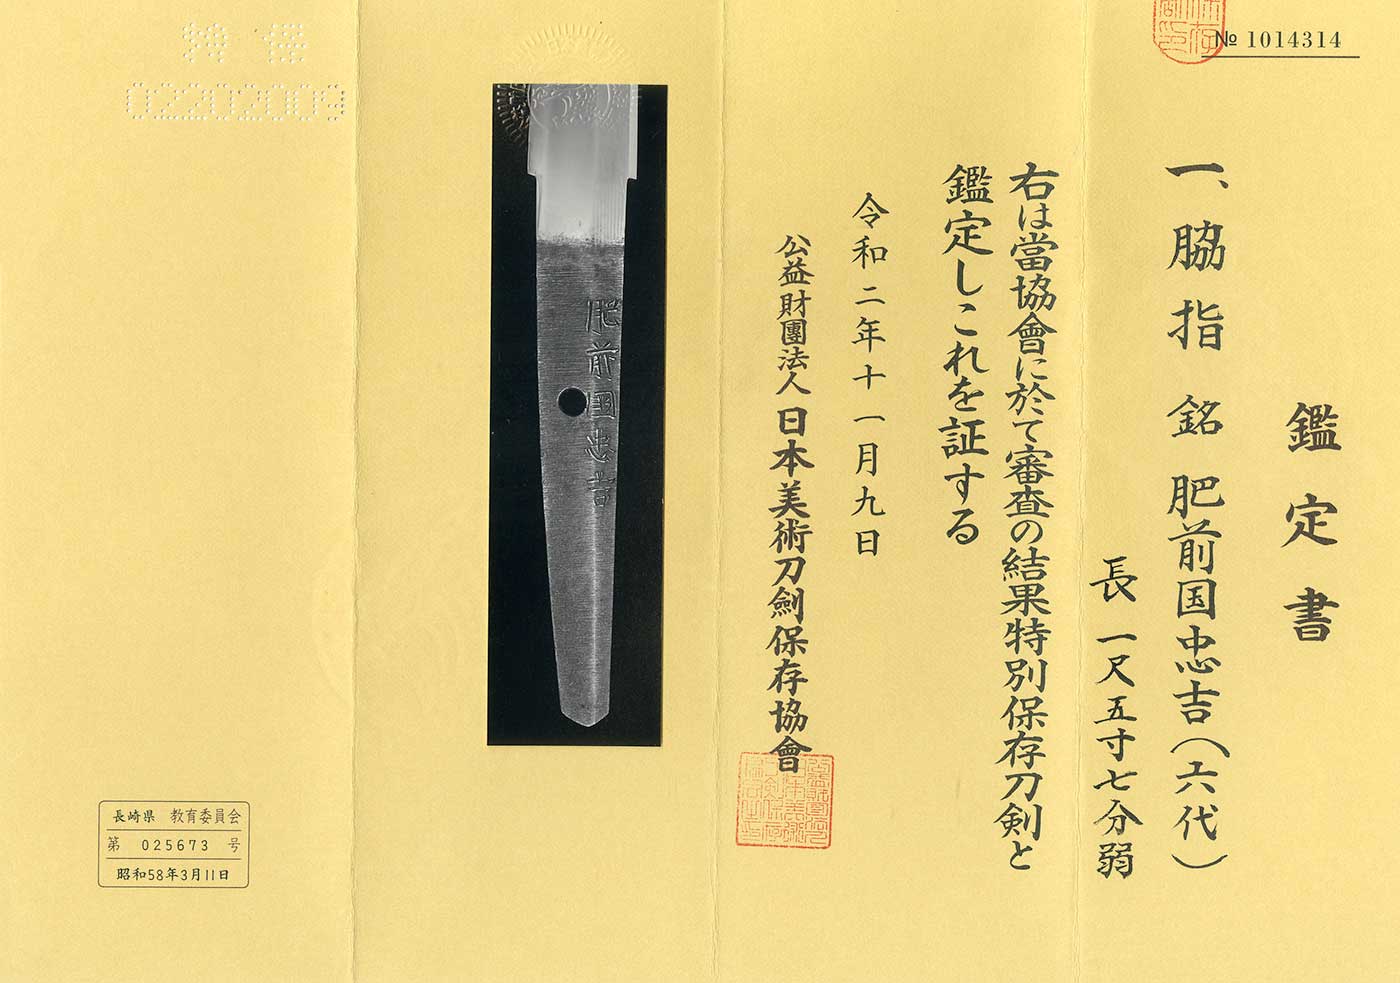 № 1014314
鑑定書
一、脇指 銘 肥前国忠吉(六代)
長 一尺五寸七分弱
右は當協會に於て審査の結果特別保存刀剣と
鑑定しこれを証する
令和二年十一月九日
公益財團法人 日本美術刀劍保存協會
肥前国忠吉
特保
02202009
長崎県 教育委員会
第 025673 号
昭和58年3月11日